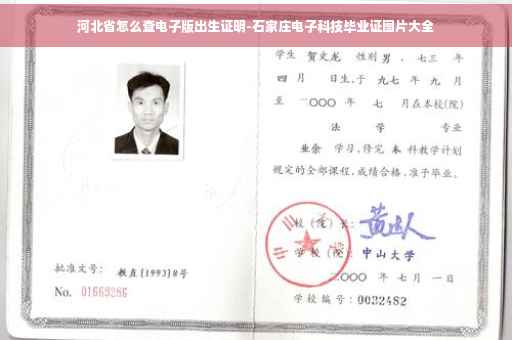 河北省怎么查电子版出生证明-石家庄电子科技毕业证图片大全
学生 贺文龙 性别 男 、七三 年
四 月 日生,于 九七 年 九 月
至 二〇〇〇 年 七 月在本校(院)
法 学 专业
业余 学习,修完 本 科教学计划
规定的全部课程,成绩合格,准予毕业。
校(院)长:
学校(院): 中山大学
二〇〇〇 年 七 月 一 日
批准文号: 教直[1993]8号
No. 01669286
学校编号:0032482